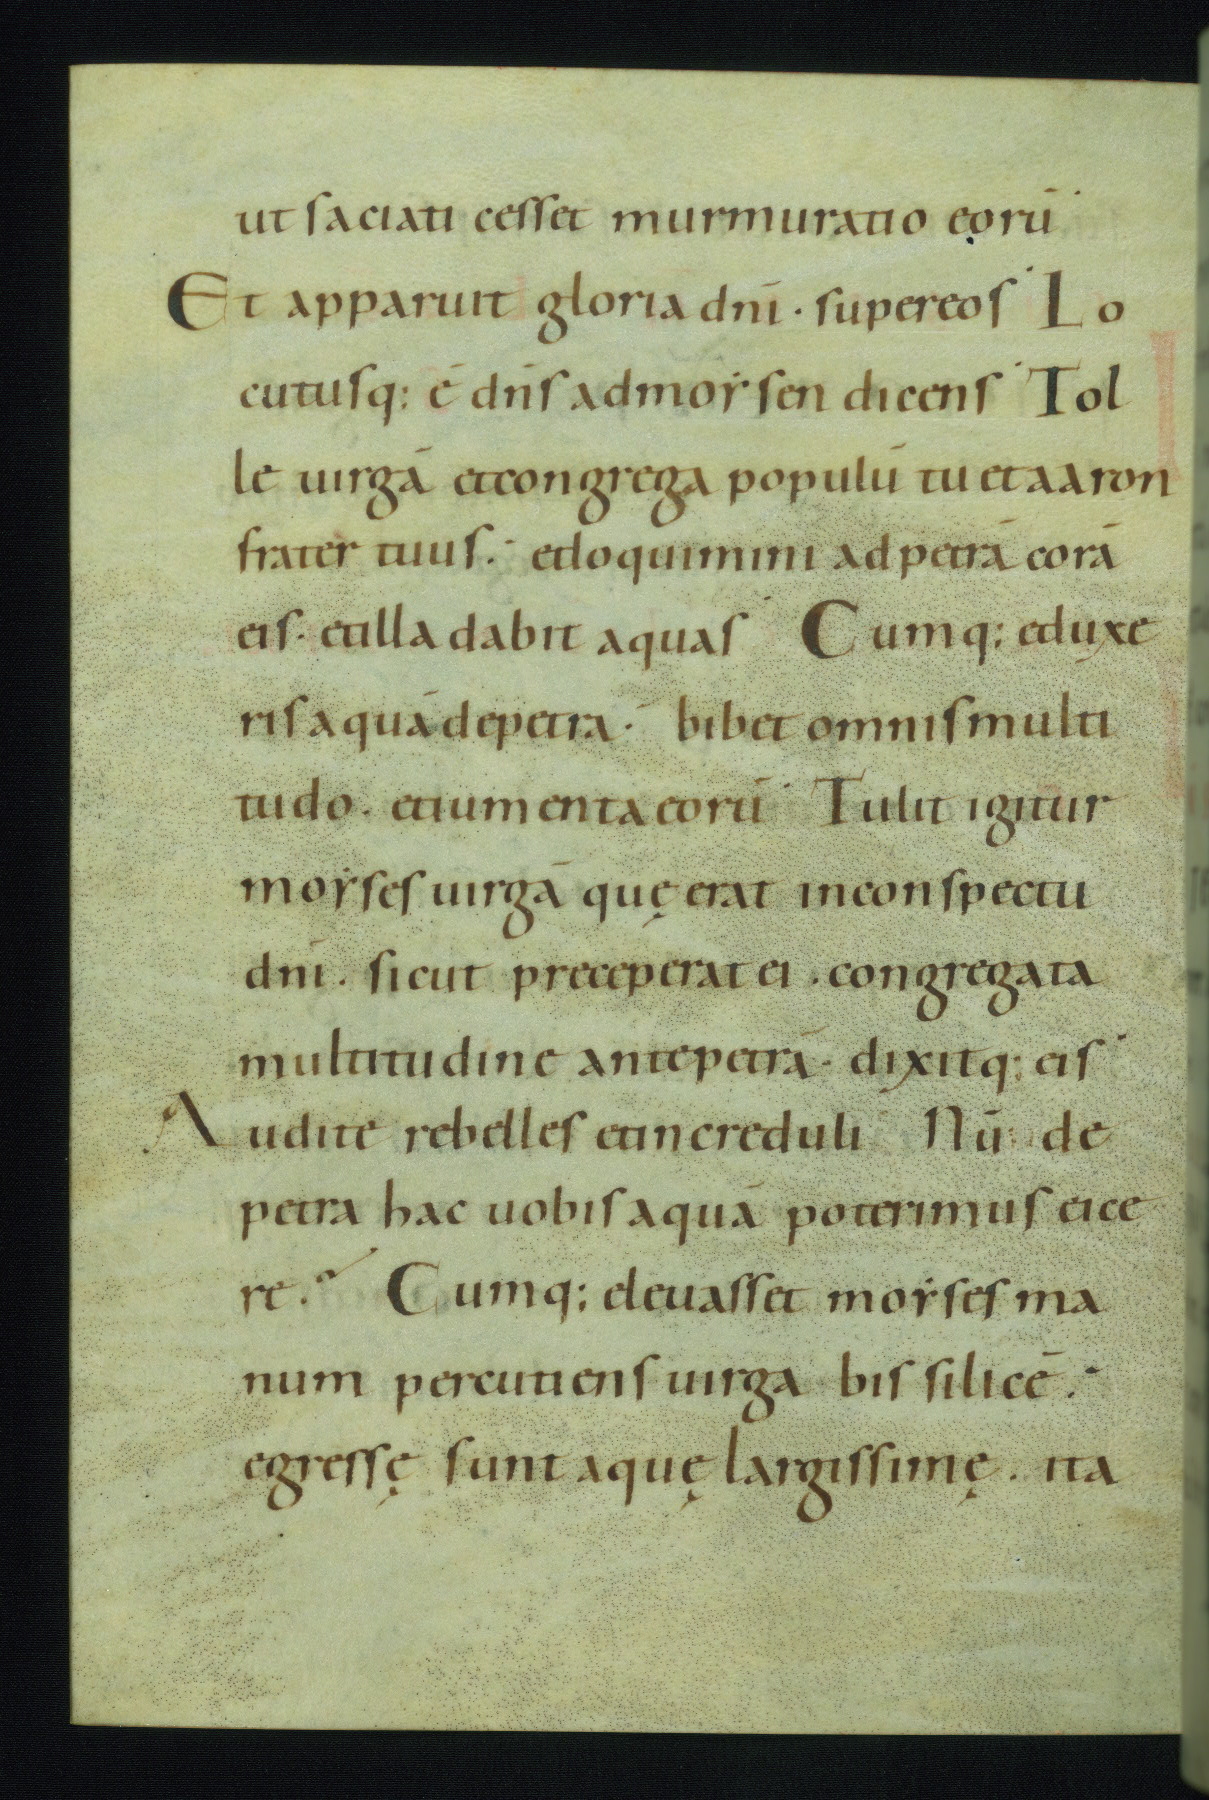 ut saciati cesset murmuratio eorū
Et apparuit gloria dnī · super eos Lo
cutusq: ē dn̄s ad moẏsen dicens Tol
le uirgā et congrega populū tu et aaron
frater tuus. et loquimini ad petrā corā
eis · et illa dabit aquas Cumq; eduxe
ris aquā de petra · bibet omnis multi
tudo · et iumenta eorū Tulit igitur
moẏses uirgā quę erat in conspectu
dnī · sicut preceperat ei · congregata
multitudine ante petrā · dixitq; eis
Audite rebelles et increduli Nū de
petra hac uobis aquā poterimus eice
re? Cumq; eleuasset moẏses ma
num percutiens uirga bis silicē.
egressę sunt aquę largissimę · ita